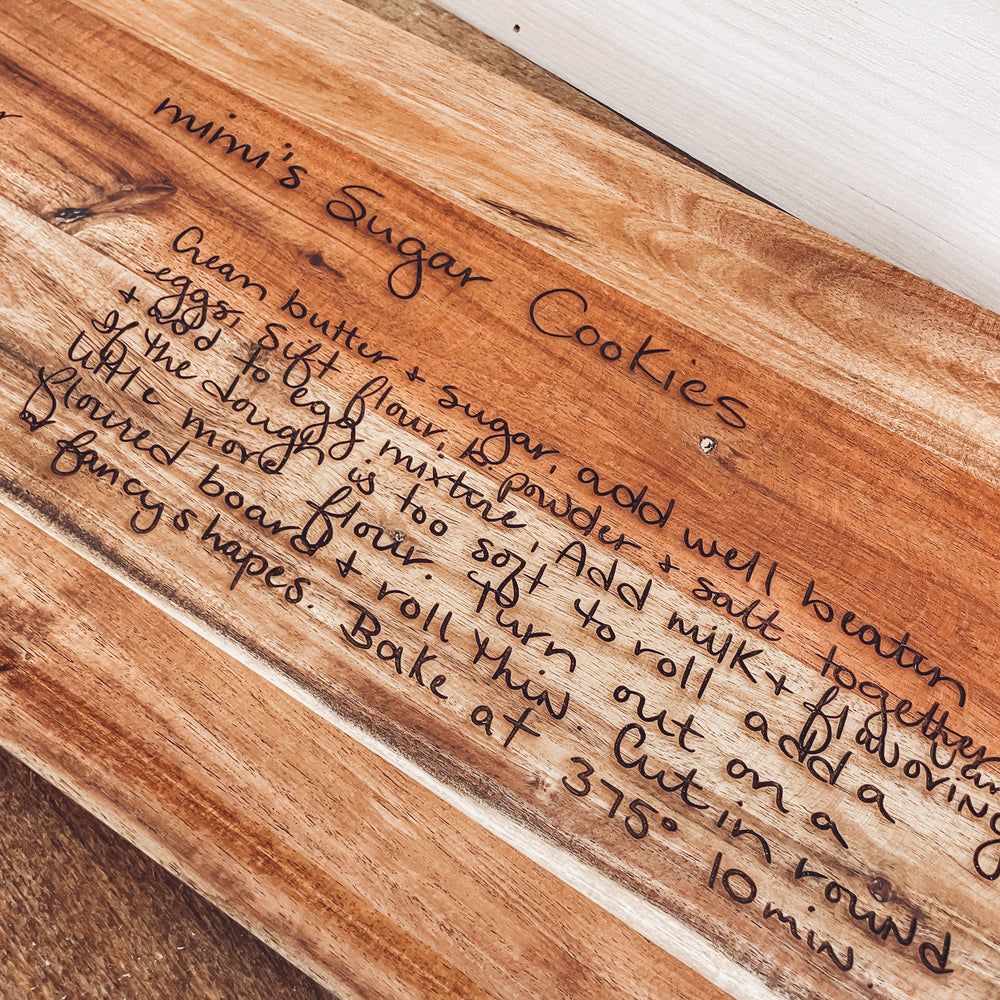 mimi's Sugar Cookies
Cream butter + sugar, add well beaten
eggs, sift flour, b. powder + salt together
+ add to egg mixture, Add milk + flavoring
If the dough is too soft to roll add a
little more flour. Turn out on a
floured board + roll thin. Cut in round
fancy shapes. Bake at 375° 10 min